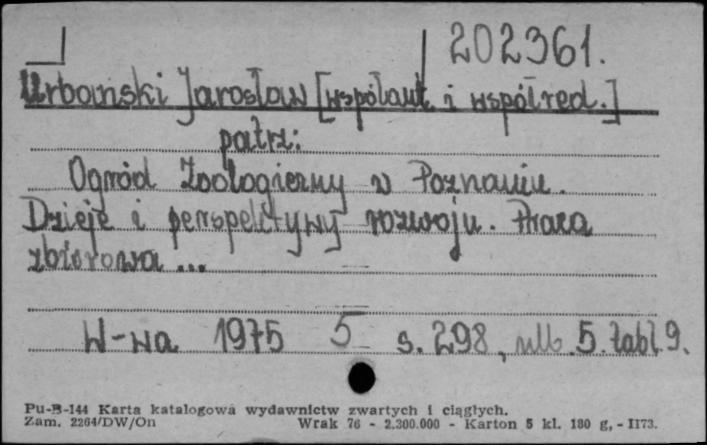 202361.
Urbański Jarosław [współaut. i współred.]
patrz:
Ogród Zoologiczny w Poznaniu.
Dzieje i perspektywy rozwoju. Praca
zbiorowa ...
W-wa 1975 5 s. 298, nlb. 5. tabl. 9.
Pu-B-144 Karta katalogowa wydawnictw zwartych i ciągłych.
Zam. 2264/DW/On Wrak 76 - 2.300.000 - Karton 5 kl. 180 g, - II73.